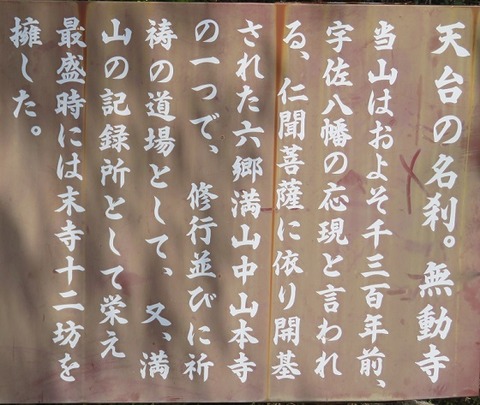 天台の名刹。無動寺
当山はおよそ千三百年前、
宇佐八幡の応現と言われ
る、仁聞菩薩に依り開基
された六郷満山中山本寺
の一つで、修行並びに祈
祷の道場として、又、満
山の記録所として栄え
最盛時には末寺十二坊を
擁した。